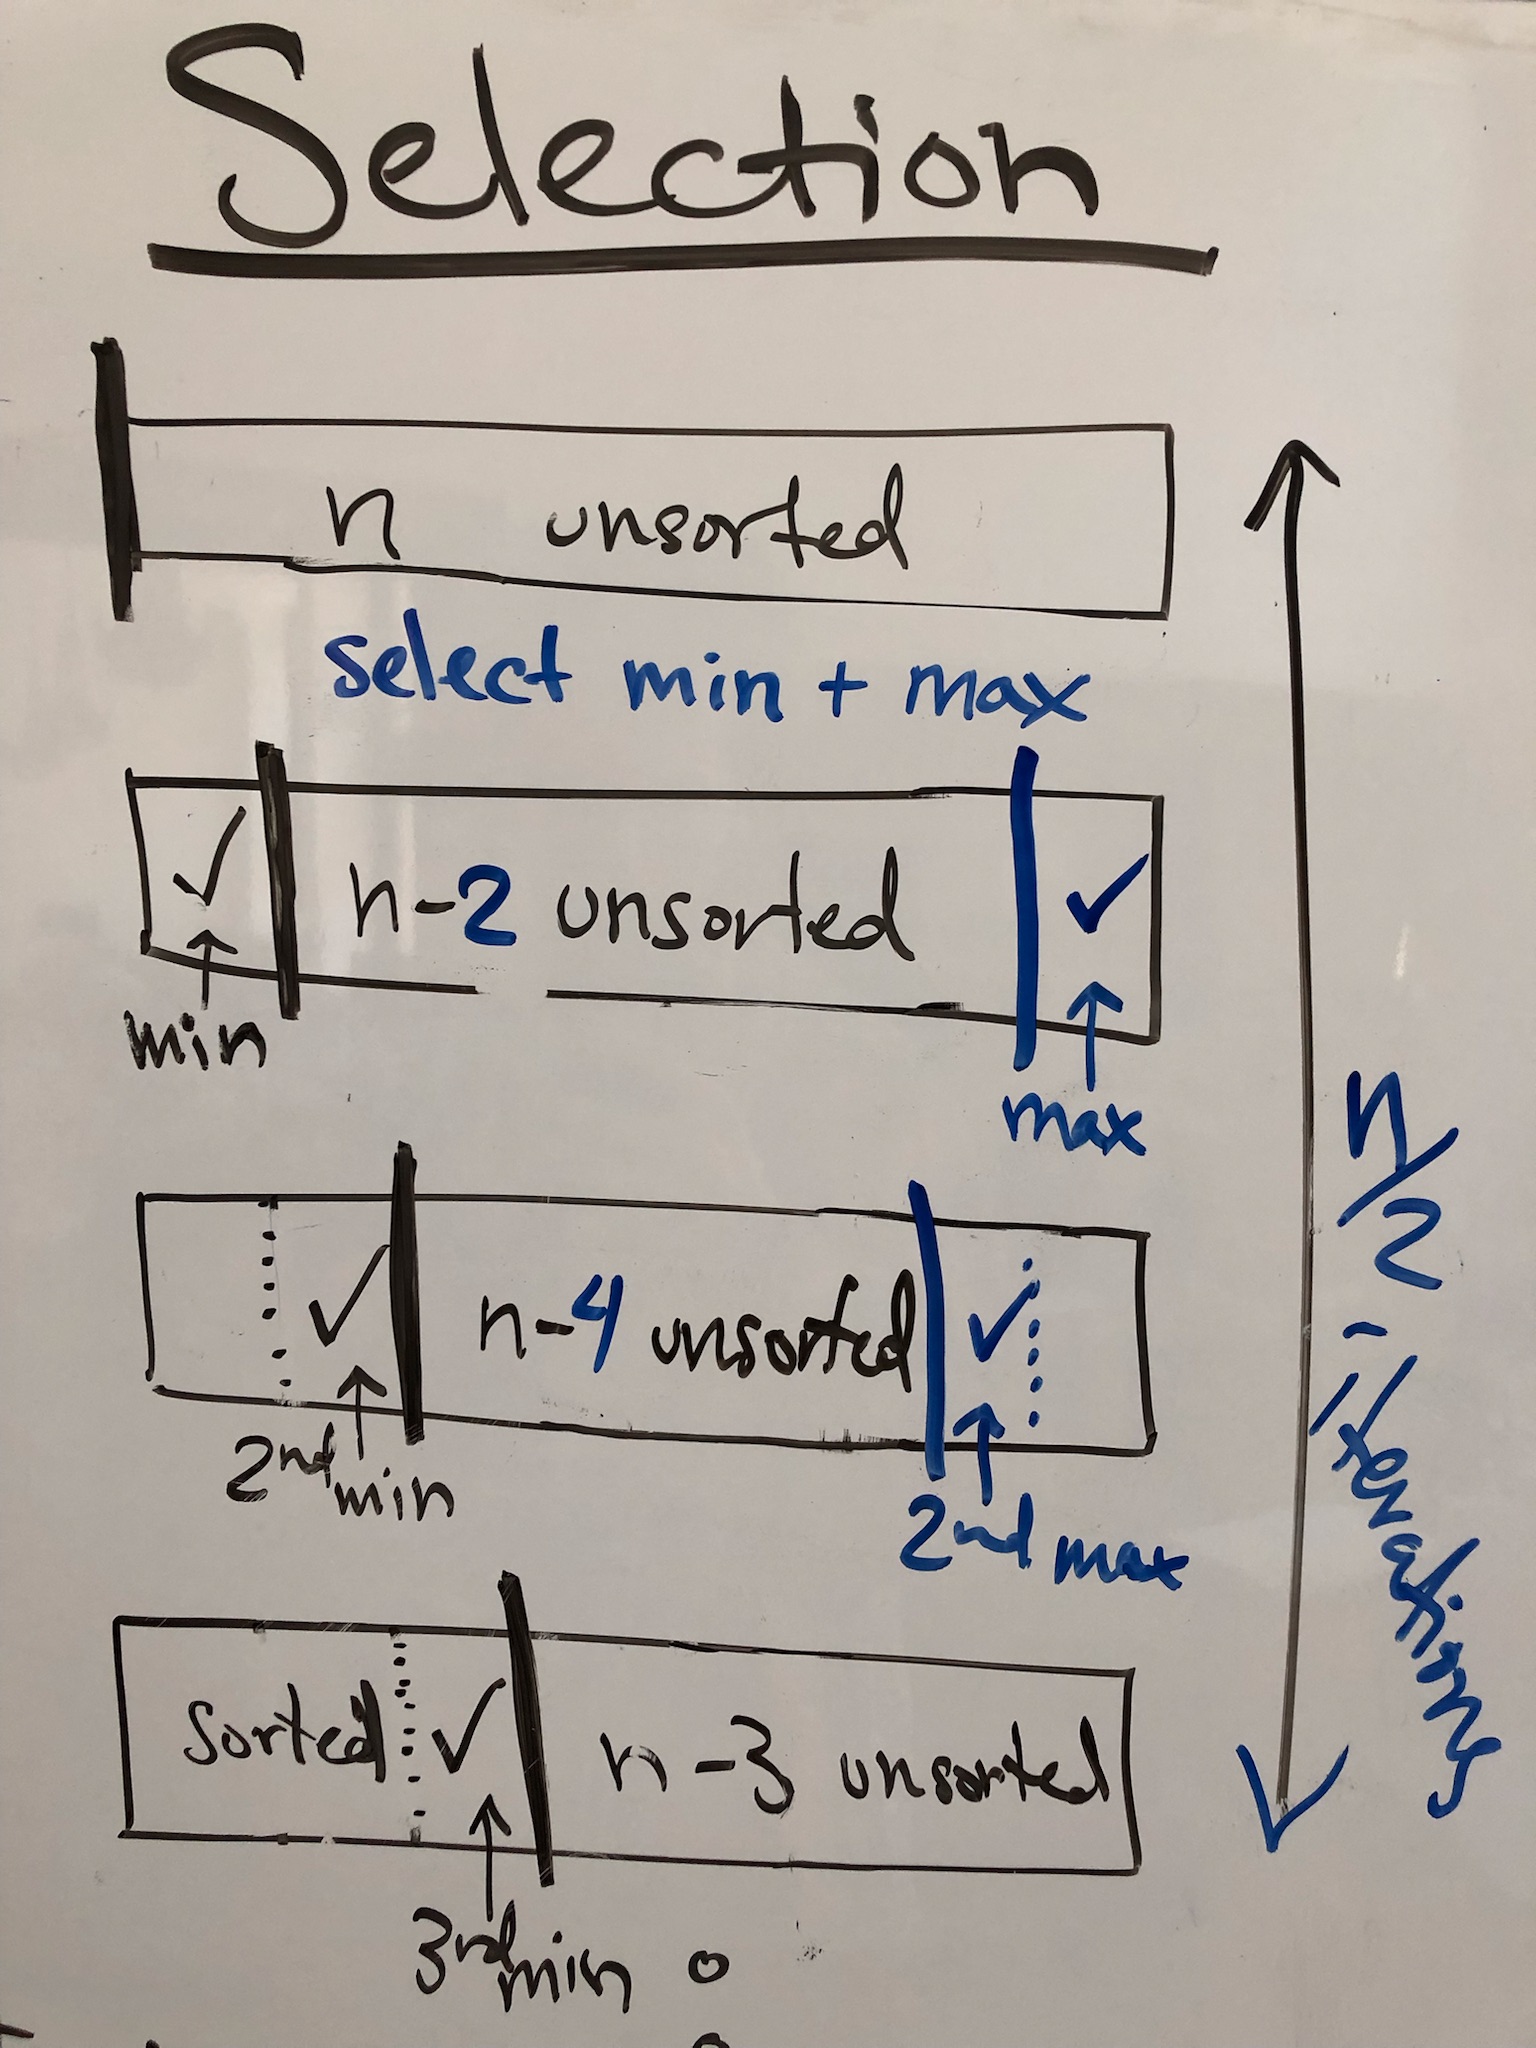 Selection
n unsorted
select min + max
✓ n-2 unsorted ✓
min
max
✓ n-4 unsorted ✓
2nd min
2nd max
sorted ✓ n-3 unsorted
3rd min
n/2 iterations